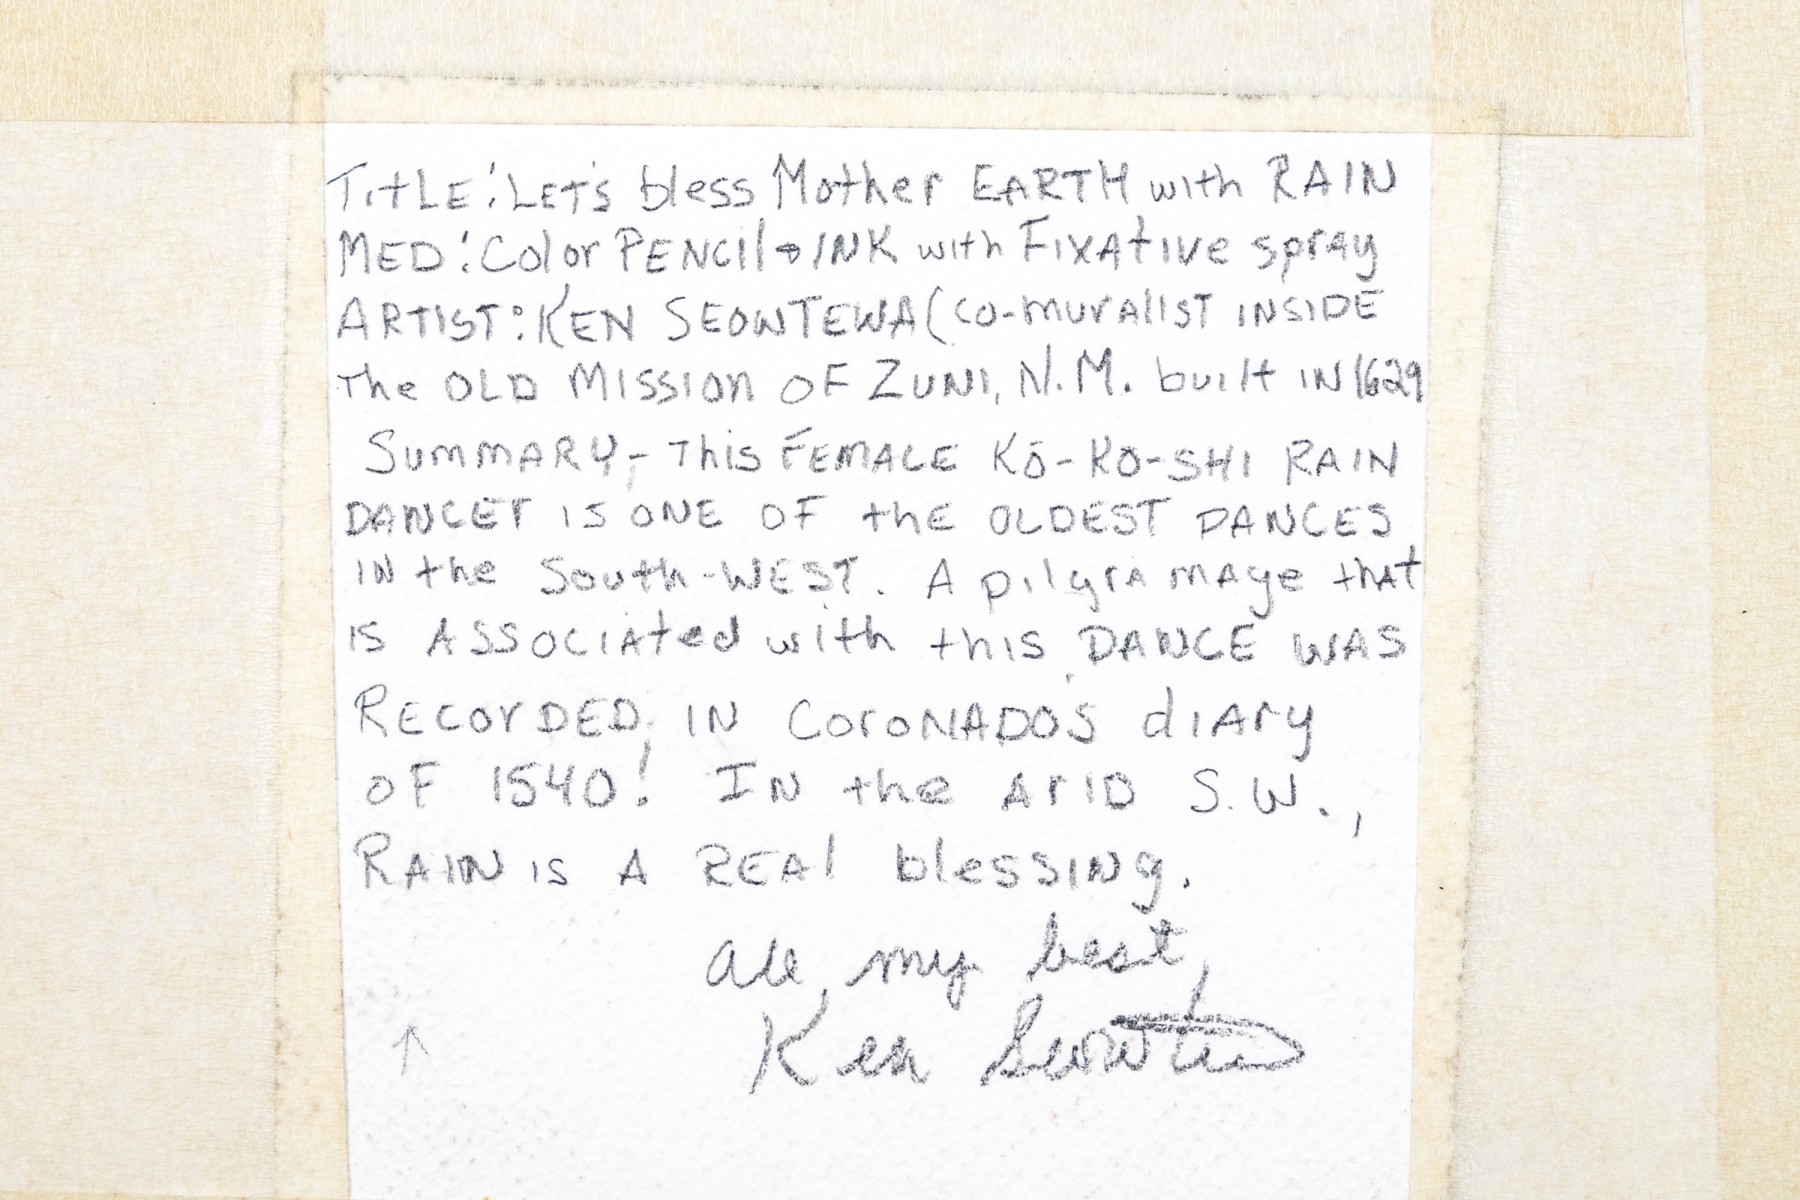 Title: Let's bless Mother EARTH with RAIN
MED: Color PENCil & INK with Fixative spray
ARTIST: KEN SEOWTEWA (co-muralist INSIDE
The OLD MISSION OF ZUNI, N.M. built IN 1629
SUMMARY,- This FEMALE KŌ-KO-SHI RAIN
DANCEr IS ONE OF the OLDEST DANCES
IN the South-WEST. A pilgramage that
is ASSOCIAted with this DANCE WAS
RECOrDED, IN CoroNADO'S diAry
OF 1540! IN the ArID S.W.,
RAIN is A REAl blessing.
all my best,
Ken Seowtewa